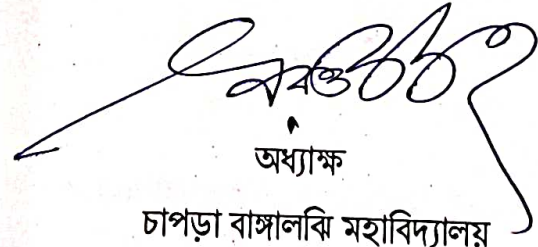 অধ্যাক্ষ
চাপড়া বাঙ্গালঝি মহাবিদ্যালয়